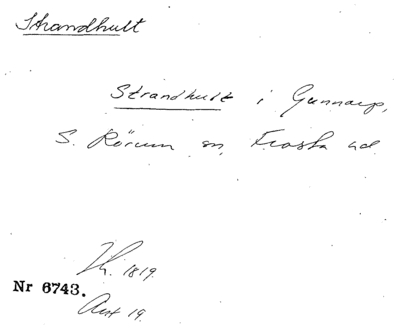 Strandhult
Strandhult i Gunnarp,
S. Rörum sn, Frosta hd.
Th. 1819.
Nr 6743.
Avt 19.